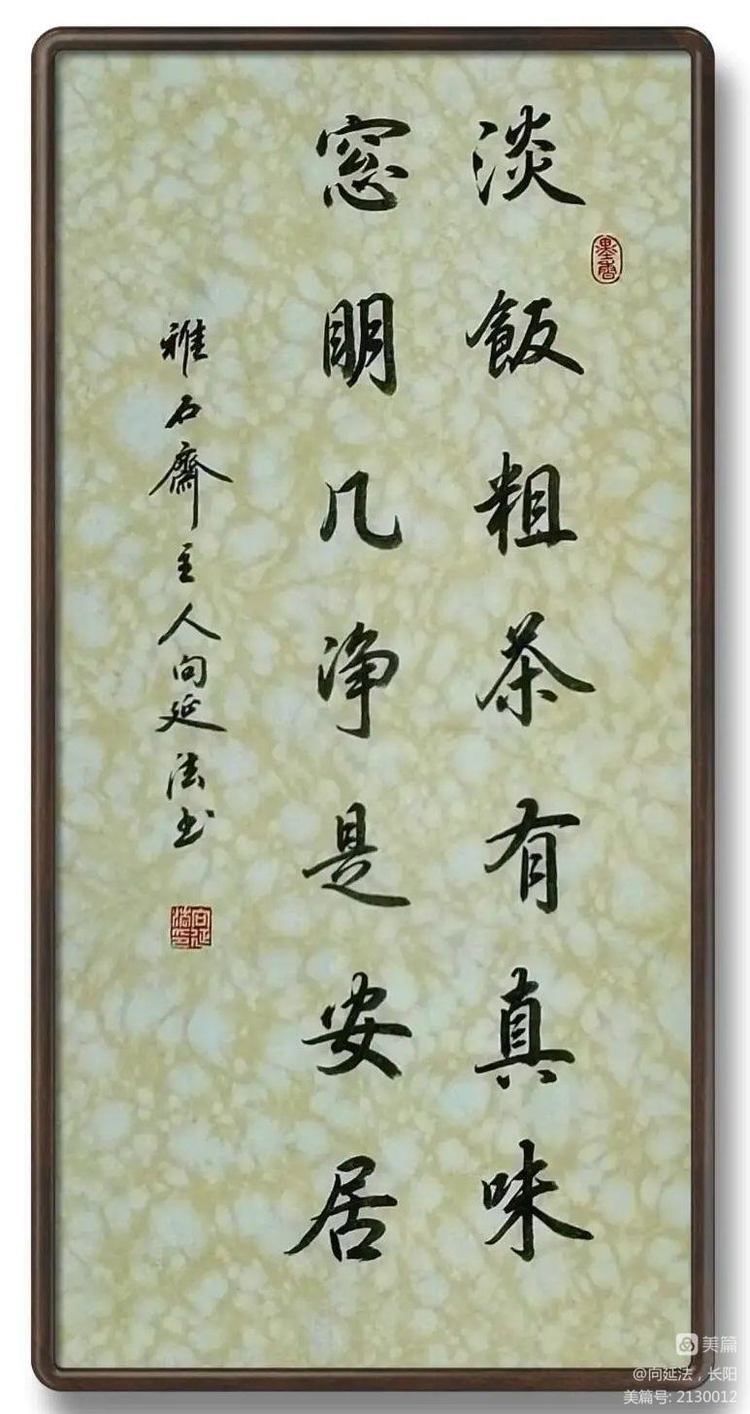 淡飯粗茶有真味
窓明几浄是安居
雅石齋主人向延法书
墨香
向延法印
美篇
@向延法，长阳
美篇号: 2130012